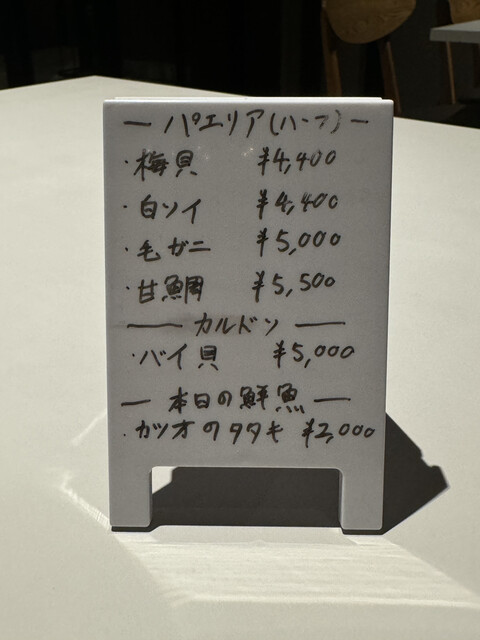 — パエリア(ハーフ) —
・梅貝 ¥4,400
・白ソイ ¥4,400
・毛ガニ ¥5,000
・甘鯛 ¥5,500
— カルドソ —
・バイ貝 ¥5,000
— 本日の鮮魚 —
・カツオのタタキ ¥2,000